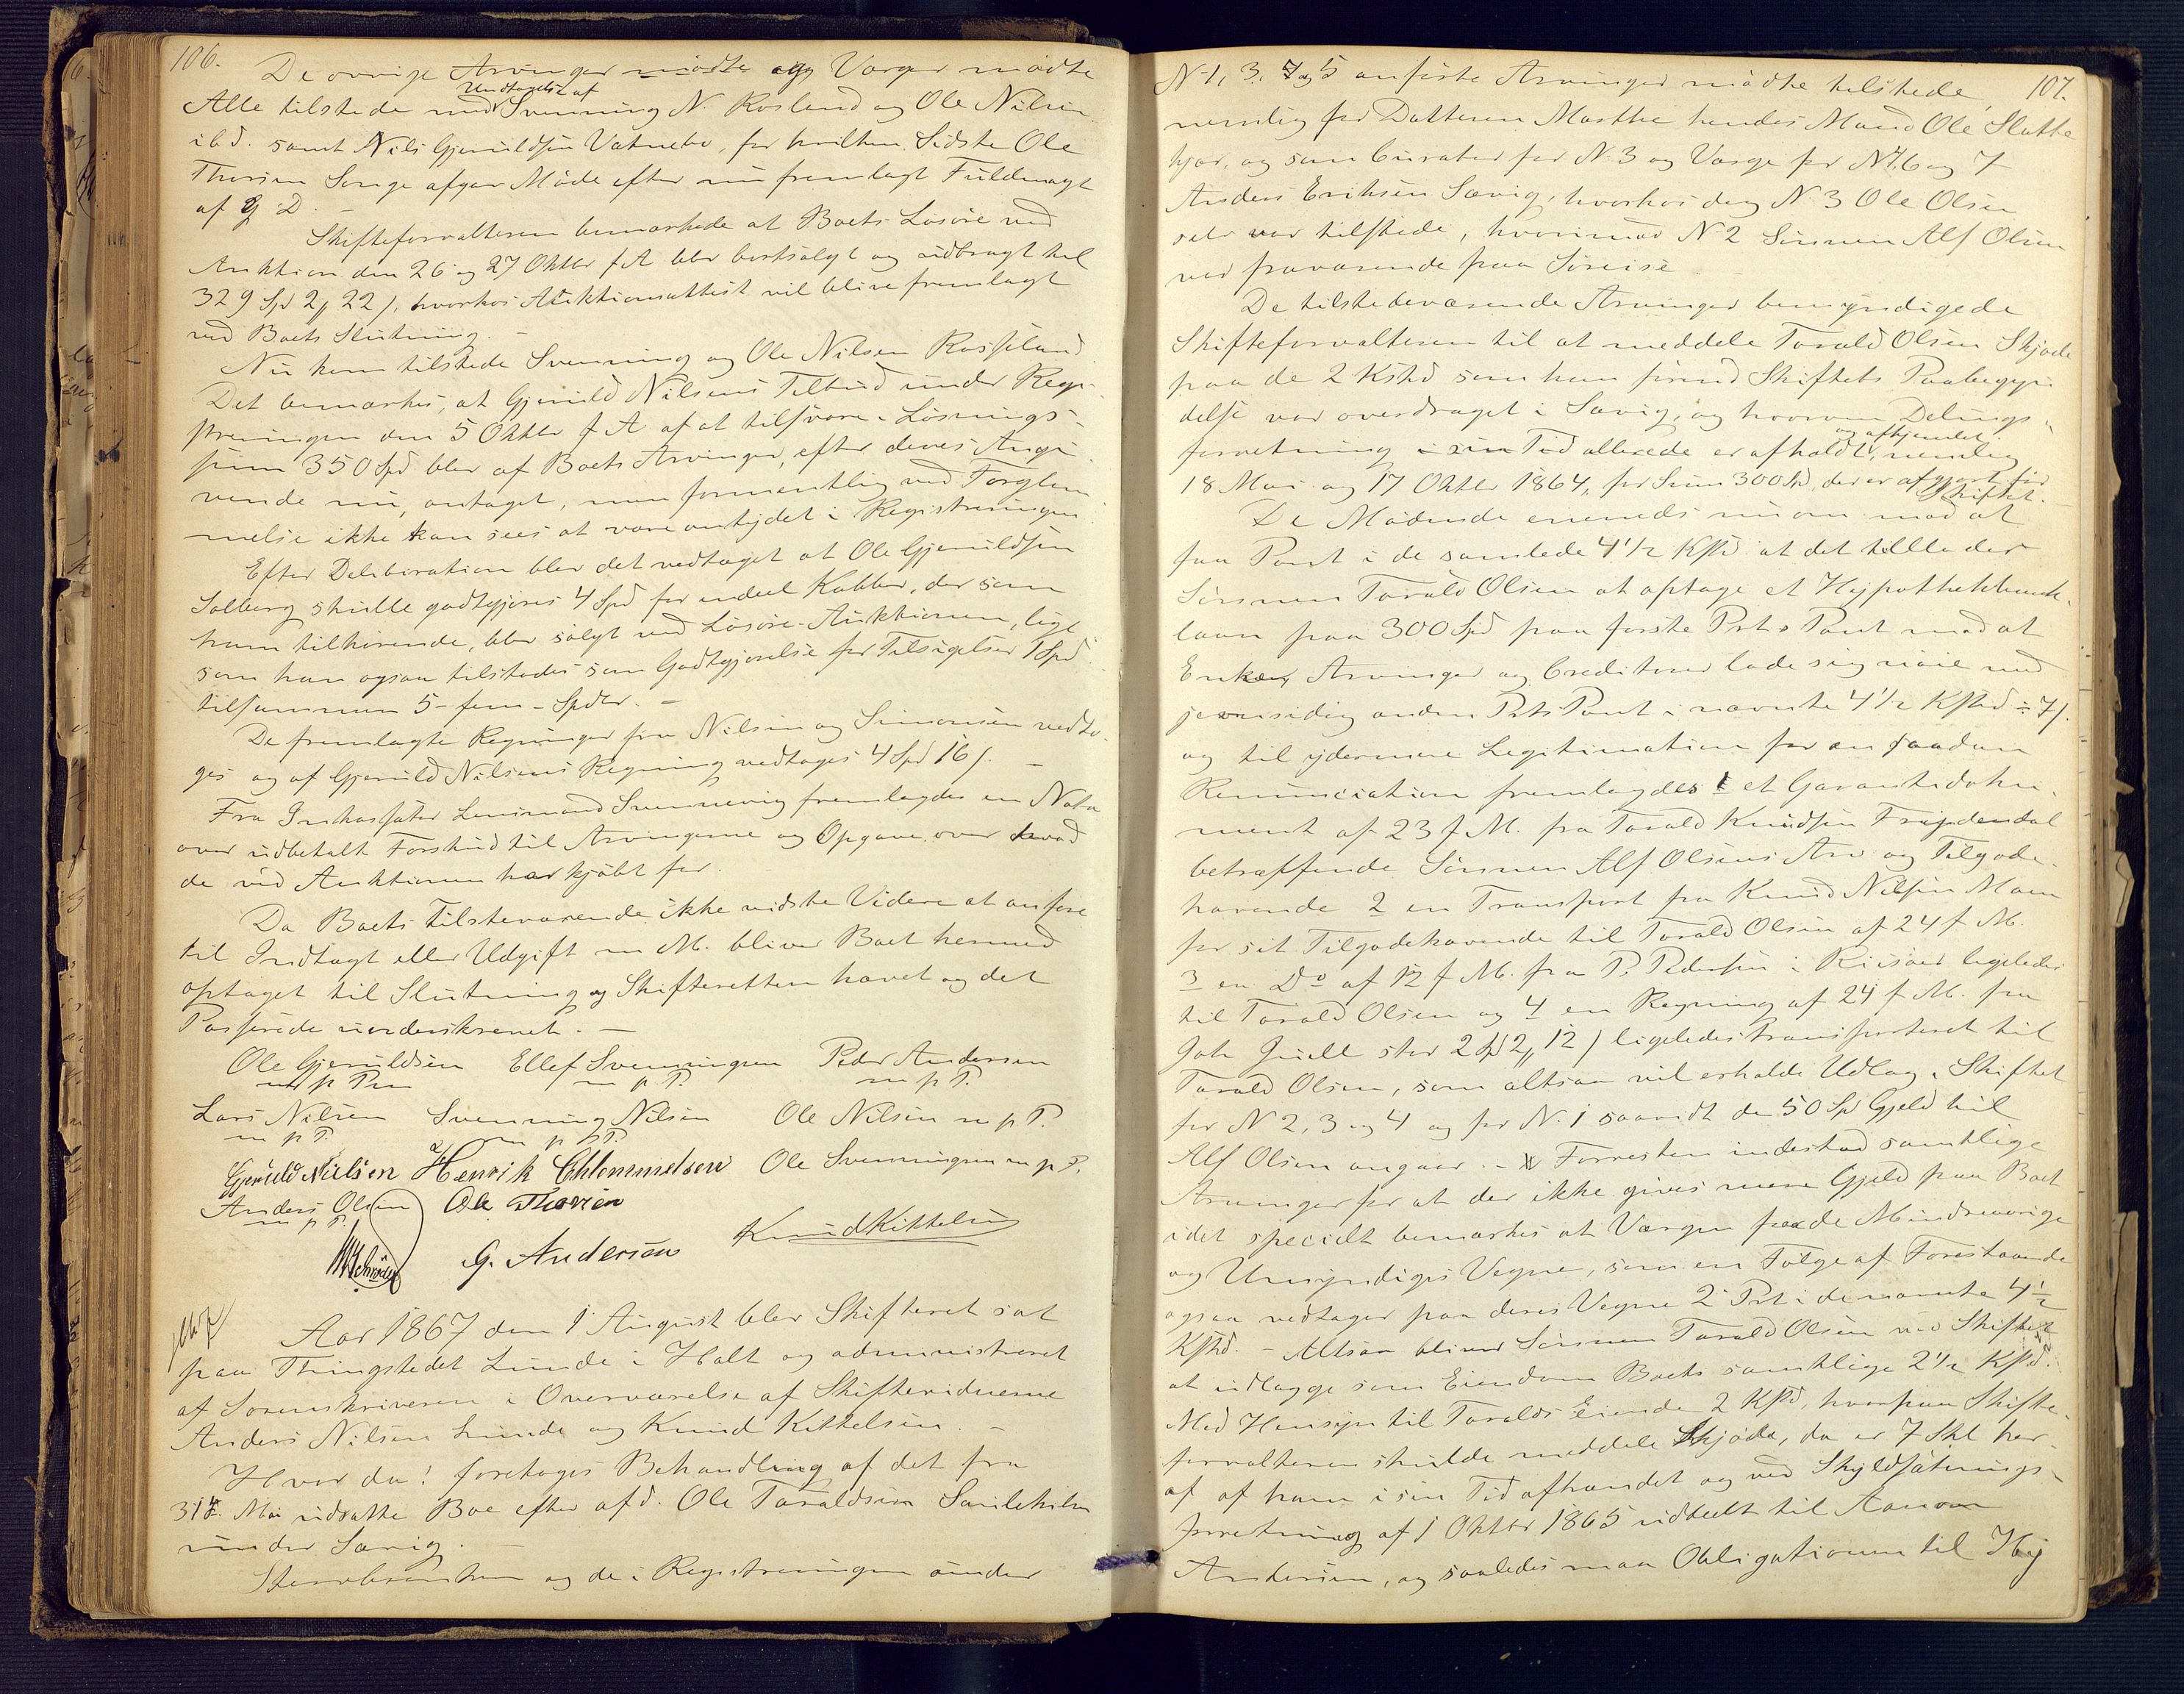 106.
De øvrige Arvinger mødte og Værger mødte
Alle tilstede med Undtagelse af Svenning N. Rosland og Ole Nilsen
ibd. samt Nils Gjeruldsen Vatnebo, for hvilken Sidste Ole
Thorsen Songe afgav Møde efter nu fremlagt Fuldmagt
af g D. –
Skifteforvalteren bemærkede at Boets Løsøre ved
Auktion den 26 og 27 Oktbr f A blev bortsolgt og udbragt til
329 Spd 2„ 22 /, hvorhos Auktionsattest vil blive fremlagt
ved Boets Slutning. –
Nu kom tilstede Svenning og Ole Nilsen Rosseland
Det bemærkes, at Gjeruld Nilsens Tilbud under Regi-
streringen den 5 Oktbr f A af at tilsvare i Løsnings-
sum 350 Spd blev af Boets Arvinger, efter deres Angi-
vende nu, antaget, men formentlig ved Forglem-
melse ikke kan sees at være antydet i Registreringen
Efter Deliberation blev det vedtaget at Ole Gjeruldsen
Solberg skulde godtgjøres 4 Spd for endeel Kobber, der som
ham tilhørende, blev solgt ved Løsøre-Auktionen, lige
som han ogsaa tilstodes som Godtgjørelse for Tilsigelser 1 Spd
tilsammen 5 – fem – Spdlr. –
De fremlagte Regninger fra Nilsen og Simonsen vedto-
ges og af Gjeruld Nilsens Regning vedtoges 4 Spd 16 /. –
Fra Inkassator Lensmand Svennevig fremlagdes en Nota
over udbetalt Forskud til Arvingerne og Opgave over hvad
de ved Auktionen har kjøbt for.
Da Boets Tilsteværende ikke vidste Videre at anføre
til Indtægt eller Udgift m M. bliver Boet hermed
optaget til Slutning og Skifteretten hævet og det
Passerede underskrevet. –
Ole Gjeruldsen Ellef Svenningsen Peder Andersen
m p Pen m p P. m p P.
Lars Nilsen Svenning Nilsen Ole Nilsen m p P.
m p P. m p P.
Gjeruld Nielsen Henrik Chlemmetsen Ole Svenningsen m p P.
Anders Olsen Ole Thorsen
m p P.
MSchrøder G. Andersen Knud Kittelsen
Aar 1867 den 1 August blev Skifteret sat
paa Thingstedet Lunde i Holt og administreret
af Sorenskriveren i Overværelse af Skiftevidnerne
Anders Nilsen Lunde og Knud Kittelsen. –
Hvor da! foretoges Behandling af det fra
31te Mai udsatte Boe efter afd. Ole Taraldsen
under Savig. –
og de i Registreringen under
107.
N 1, 3, 7 og 5 anførte Arvinger mødte tilstede,
nemlig for Datteren Marthe hendes Mand Ole Slatte
og som Curator for N. 3 og Værge for N 4, 6 og 7
Anders Eriksen Savig, hvorhos den N. 3 Ole Olsen
selv var tilstede, hvorimod N 2 Sønnen Alf Olsen
var fraværende paa Søreise. –
De tilstedeværende Arvinger bemyndigede
Skifteforvalteren til at meddele Tarald Olsen Skjøde
paa de 2 Kskd som ham førend Skiftets Paabegyn-
delse var overdraget i Savig, og hvorom Delings-
forretning i sin Tid allerede er afholdt og afhjemlet, nemlig
18 Mai og 17 Oktbr 1864, for Sum 300 Spd, der er afgjort før
Skiftet.
De Mødende enedes nu om mod at
faa Pant i de samlede 4 1/2 Kskd at det tillader
Sønnen Tarald Olsen at optage et Hypothekbank-
laan paa 300 Spd paa første Prts Pant mod at
Enken, Arvinger og Creditorer lade sig nøie med
jevnsidig anden Prts Pant i nævnte 4 1/2 Kskd ÷ 7 /.
og til ydermere Legitimation for en saadan
Renunciation fremlagdes 1 et Garantidoku-
ment af 23 f M. fra Tarald Knudsen Frydendal
betræffende Sønnen Alf Olsens Arv og Tilgode-
havende 2 en Transport fra Knud Nilsen Moen
for sit Tilgodehavende til Tarald Olsen af 24 f M.
3 en Do af 12 f M. fra P. Pedersen i Riisøer ligeledes
til Tarald Olsen og 4 en Regning af 24 f M. fra
Joh Juell stor 2 Spd 2„ 12 / ligeledes transporteret til
Tarald Olsen, som altsaa vil erholde Udlæg i Skiftet
for N 2, 3 og 4 og for N. 1 saavidt de 50 Spd Gjeld til
Alf Olsen angaar. – Forresten indestod samtlige
Arvinger for at der ikke gives mere Gjeld paa Boet
idet specielt bemærkes at Værgen paa de Mindreaarige
og Umyndiges Vegne, som en Følge af Forestaaende
ogsaa vedtager paa deres Vegne 2 Prt i de nævnte 4 1/2
Kskd. – Altsaa bliver Sønnen Tarald Olsen ved Skiftet
at udlægge som Eiendom Boets samtlige 2 1/2 Kskd.
Med Hensyn til Taralds Eiende 2 Kskd, hvorpaa Skifte-
forvalteren skulde meddele Skjøde, da er 7 Skl her-
af af ham i sin Tid afhændet og ved Skyldsætnings-
forretning af 1 Oktbr 1865 uddeelt til Aanon
Andersen, og saaledes maa Obligationen til Hy